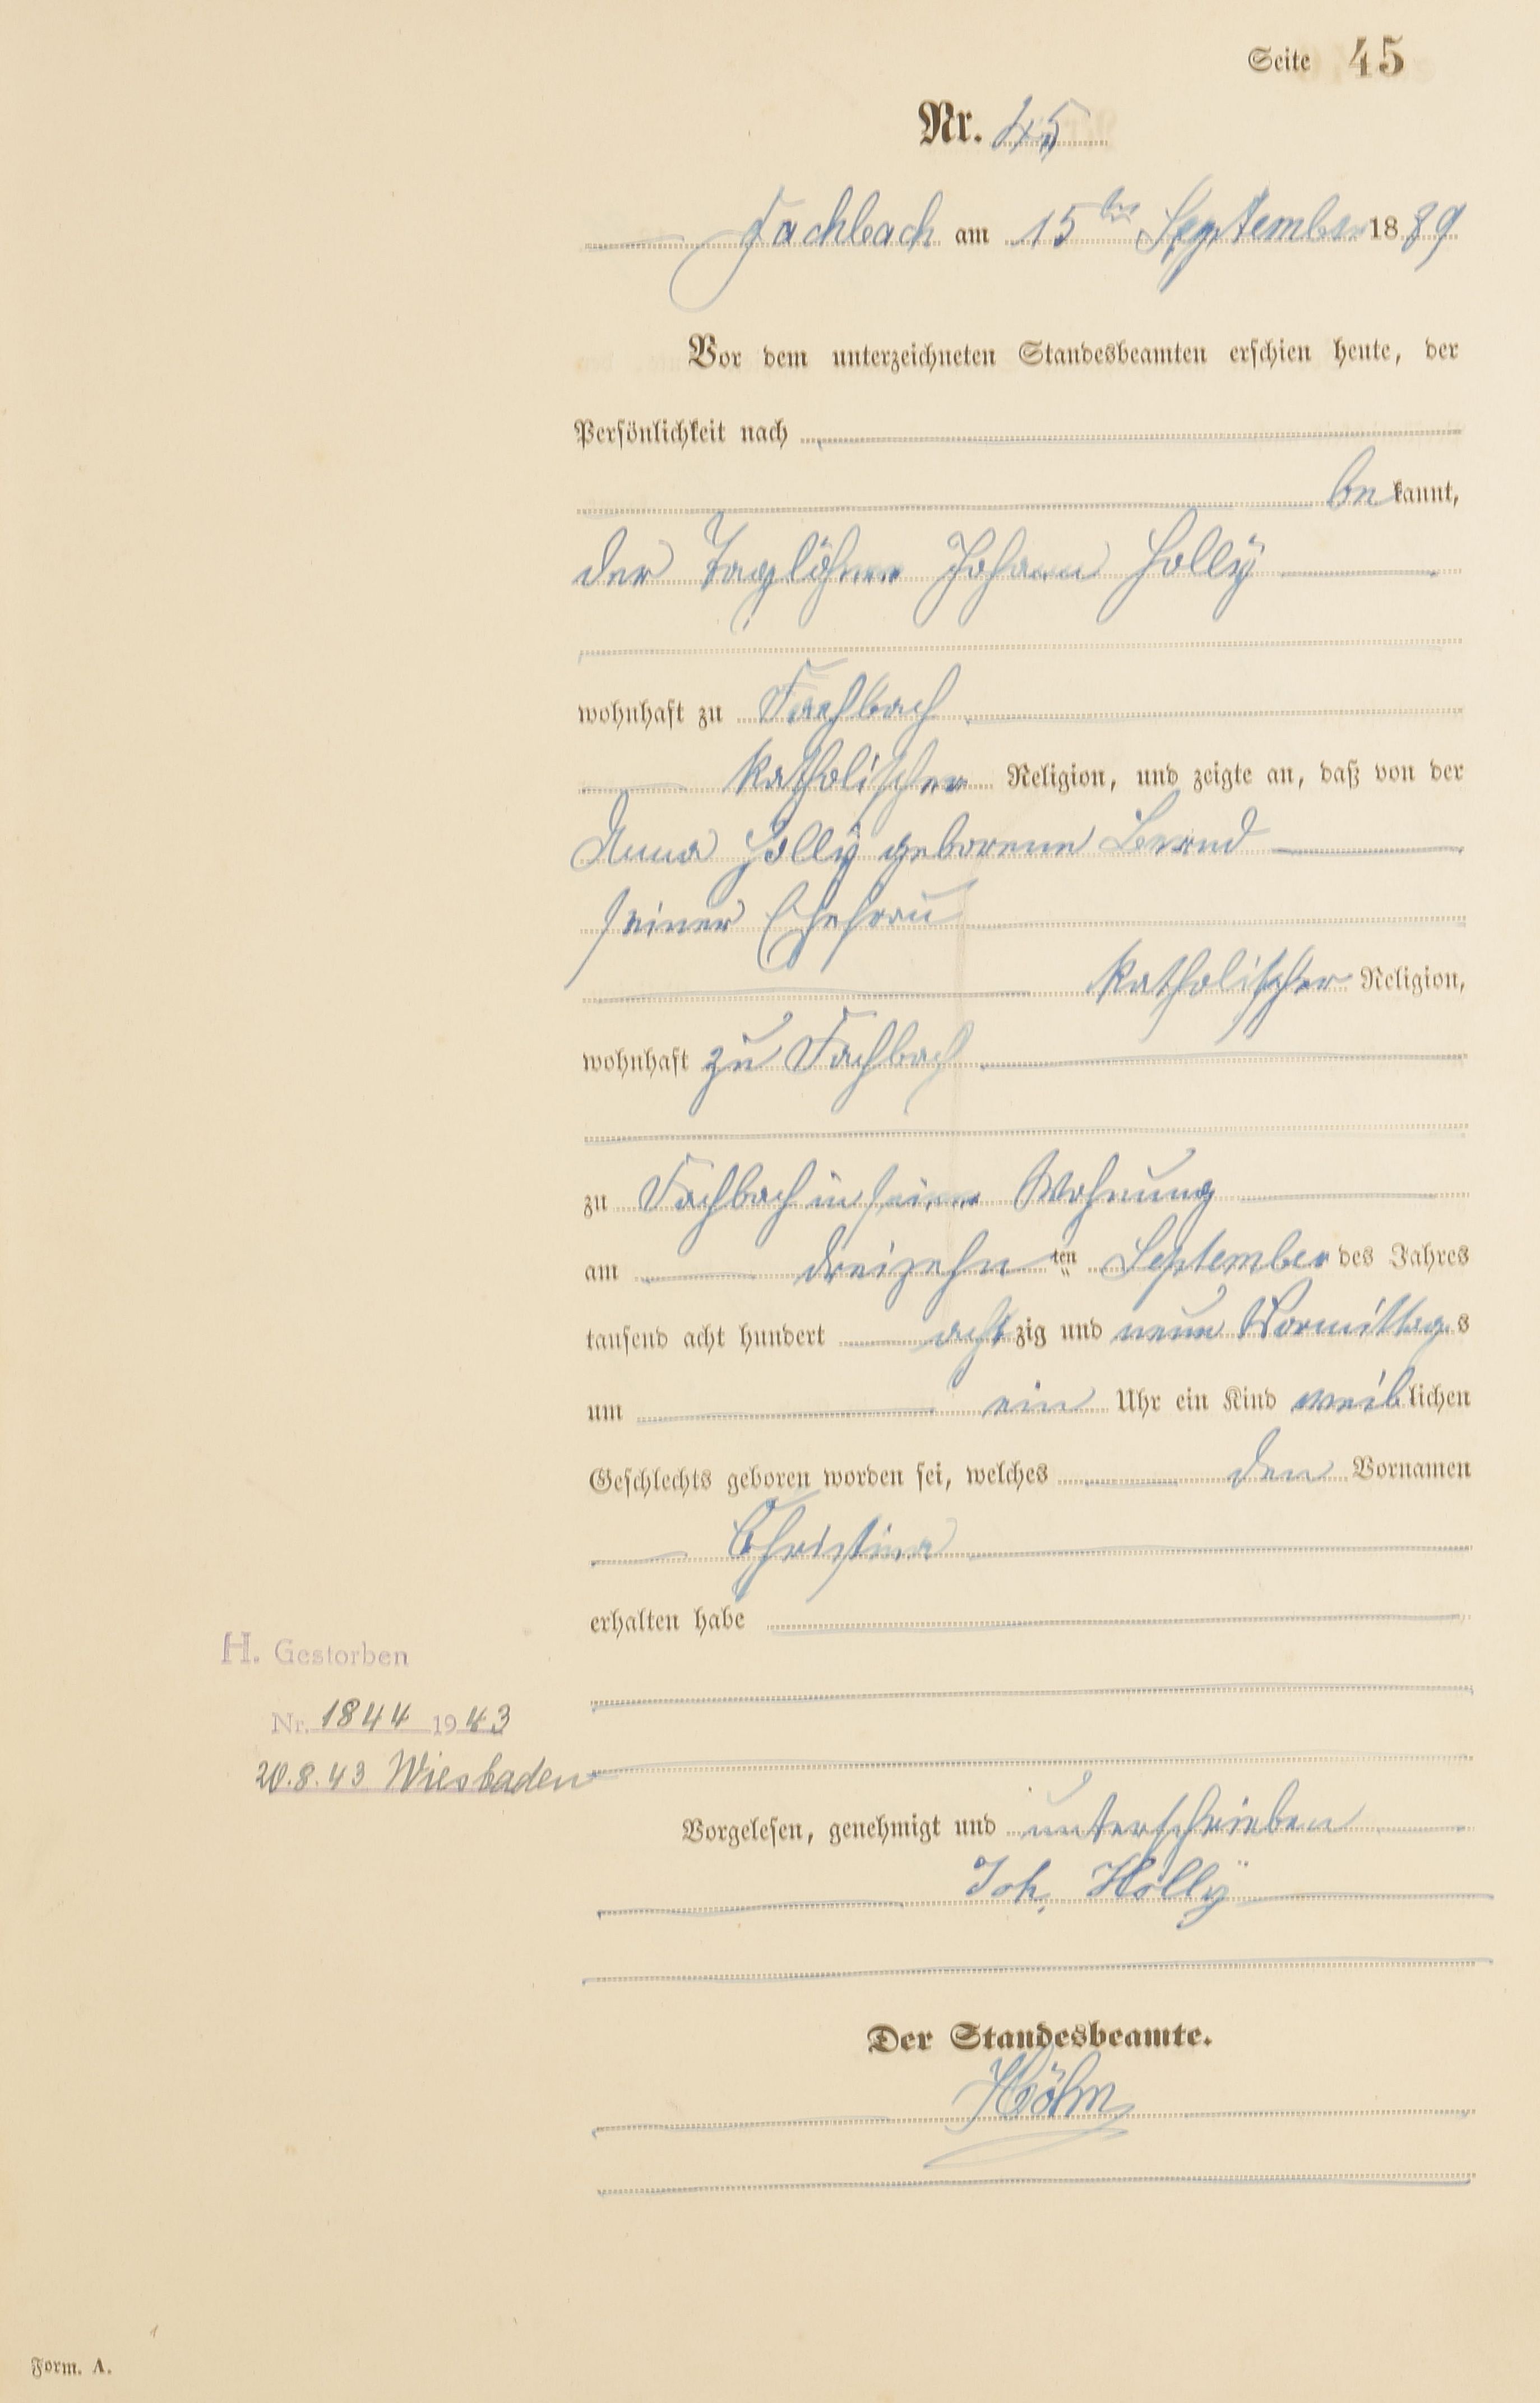 Seite 45
Nr. 45
Fachbach am 15ten September 1889
Vor dem unterzeichneten Standesbeamten erschien heute, der
Persönlichkeit nach
bekannt,
der Taglöhner Johann Holly
wohnhaft zu Fachbach
katholischer Religion, und zeigte an, daß von der
Anna Holly geborene Bernd
seiner Ehefrau
katholischer Religion,
wohnhaft zu Fachbach
zu Fachbach in seiner Wohnung
am dreizehnten September des Jahres
tausend acht hundert achtzig und neun Vormittags
um ein Uhr ein Kind weiblichen
Geschlechts geboren worden sei, welches den Vornamen
Christina
erhalten habe
H. Gestorben
Nr. 1844 1943
20.8.43 Wiesbaden
Vorgelesen, genehmigt und unterschrieben
Joh. Holly
Der Standesbeamte.
Form. A.